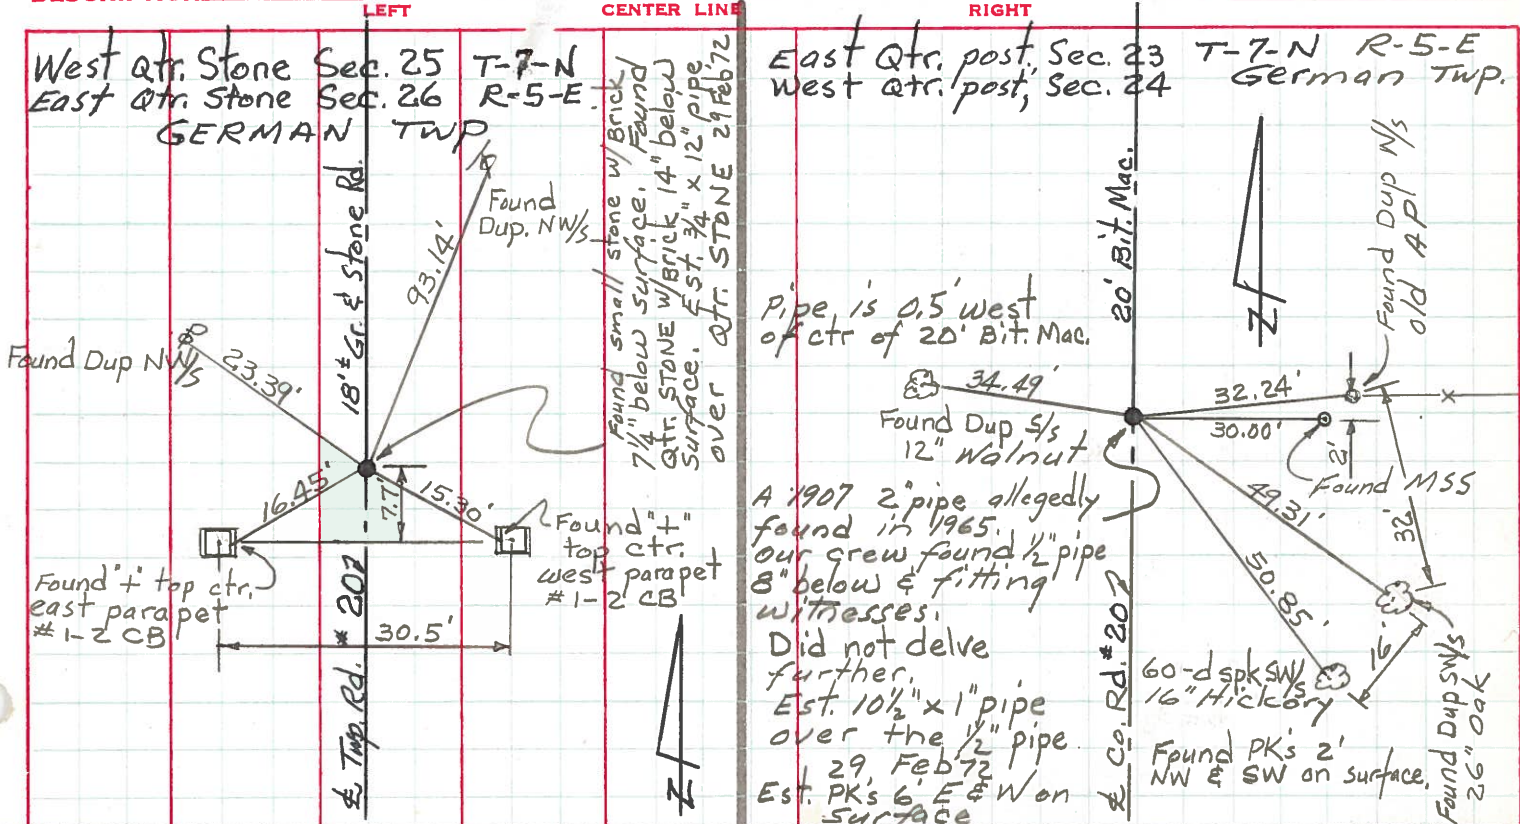 LEFT
CENTER LINE
RIGHT
West Qtr. Stone Sec. 25 T-7-N
East Qtr. Stone Sec. 26 R-5-E.
GERMAN TWP
18'± Gr. & Stone Rd.
Found
Dup. NW/s
93.14'
Found Dup NW/s
23.39'
16.45'
15.30'
7.7'
Found "+" top ctr.
east parapet
#1-2 CB
Found "+"
top ctr.
west parapet
#1-2 CB
30.5'
℄ Twp. Rd. #207
Found small stone w/ Brick
7¼" below surface. Found
Qtr. STONE w/Brick 14" below
surface. Est. ¾" x 12" pipe
over Qtr. STONE 29 Feb '72
East Qtr. post, Sec. 23 T-7-N R-5-E
West Qtr. post, Sec. 24 German Twp.
20' Bit. Mac.
Pipe is 0.5' west
of ctr of 20' Bit. Mac.
34.49'
Found Dup S/s
12" Walnut
32.24'
30.00'
2'
Found Dup N/s
old API
x
Found MSS
49.31'
32'
50.85'
16'
A 1907 2" pipe allegedly
found in 1965.
our crew found ½" pipe
8" below & fitting
witnesses.
Did not delve
further.
Est. 10½" x 1" pipe
over the ½" pipe
29, Feb '72
Est. PKs 6' E & W on
surface
60-d spk SW/s
16" Hickory
Found PK's 2'
NW & SW on surface.
Found Dup SW/s
26" Oak
℄ Co. Rd. #207
N
N